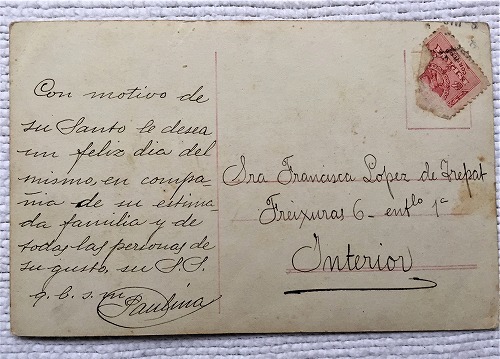 Con motivo de
su Santo le desea
un feliz dia del
mismo, en compa-
ñia de su estima-
da familia y de
todas las personas de
su gusto, su S.S.
q. b. s. m
Paulina
Sra Francisca Lopez de Trepat
Freixuras 6 - entlo 1ª
Interior